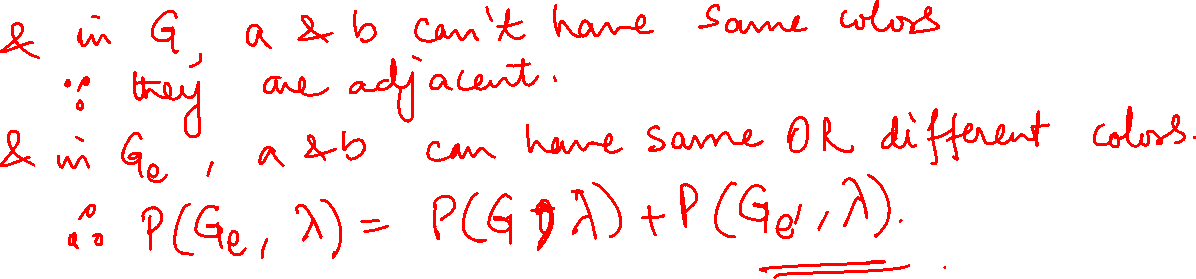 & in G, a & b can't have same colors
∵ they are adjacent.
& in Ge, a & b can have same OR different colors.
∴ P(Ge, λ) = P(G, λ) + P(Ge', λ).